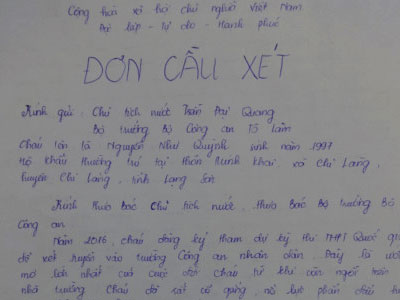 Cộng hoà xã hội chủ nghĩa Việt Nam
Độc lập - Tự do - Hạnh phúc
ĐƠN CẦU XÉT
Kính gửi : Chủ tịch nước Trần Đại Quang
Bộ trưởng Bộ Công an Tô Lâm
Cháu tên là : Nguyễn Như Quỳnh sinh năm 1997
Hộ khẩu thường trú tại thôn Minh Khai, xã Chi Lăng,
huyện Chi Lăng, tỉnh Lạng Sơn
Kính thưa Bác Chủ tịch nước, thưa Bác Bộ trưởng Bộ
Công an
Năm 2016, cháu đăng ký tham dự kỳ thi THPT Quốc gi
để xét tuyển vào trường Công an nhân dân. Đây là ước
mơ lớn nhất của cuộc đời cháu từ khi còn ngồi trên
nhà trường. Cháu đã rất cố gắng, nỗ lực phấn đấu